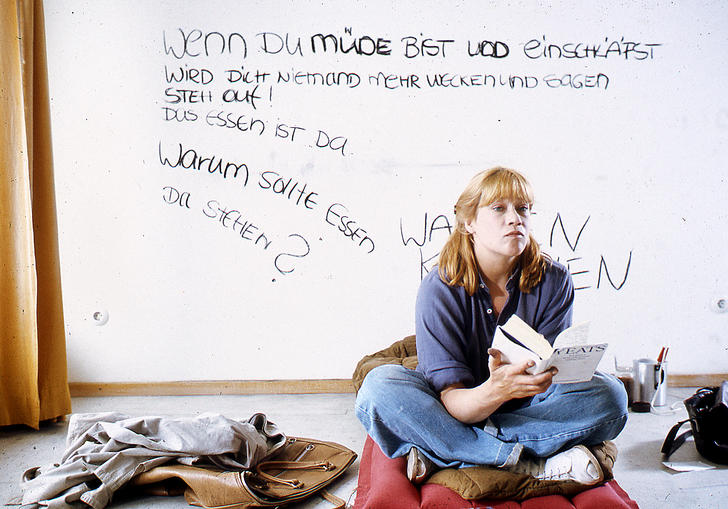 Wenn Du müde bist und einschläfst
wird dich niemand mehr wecken und sagen
steh auf!
Das Essen ist da.
Warum sollte Essen
da stehen?
WA EN
K EN
YEATS